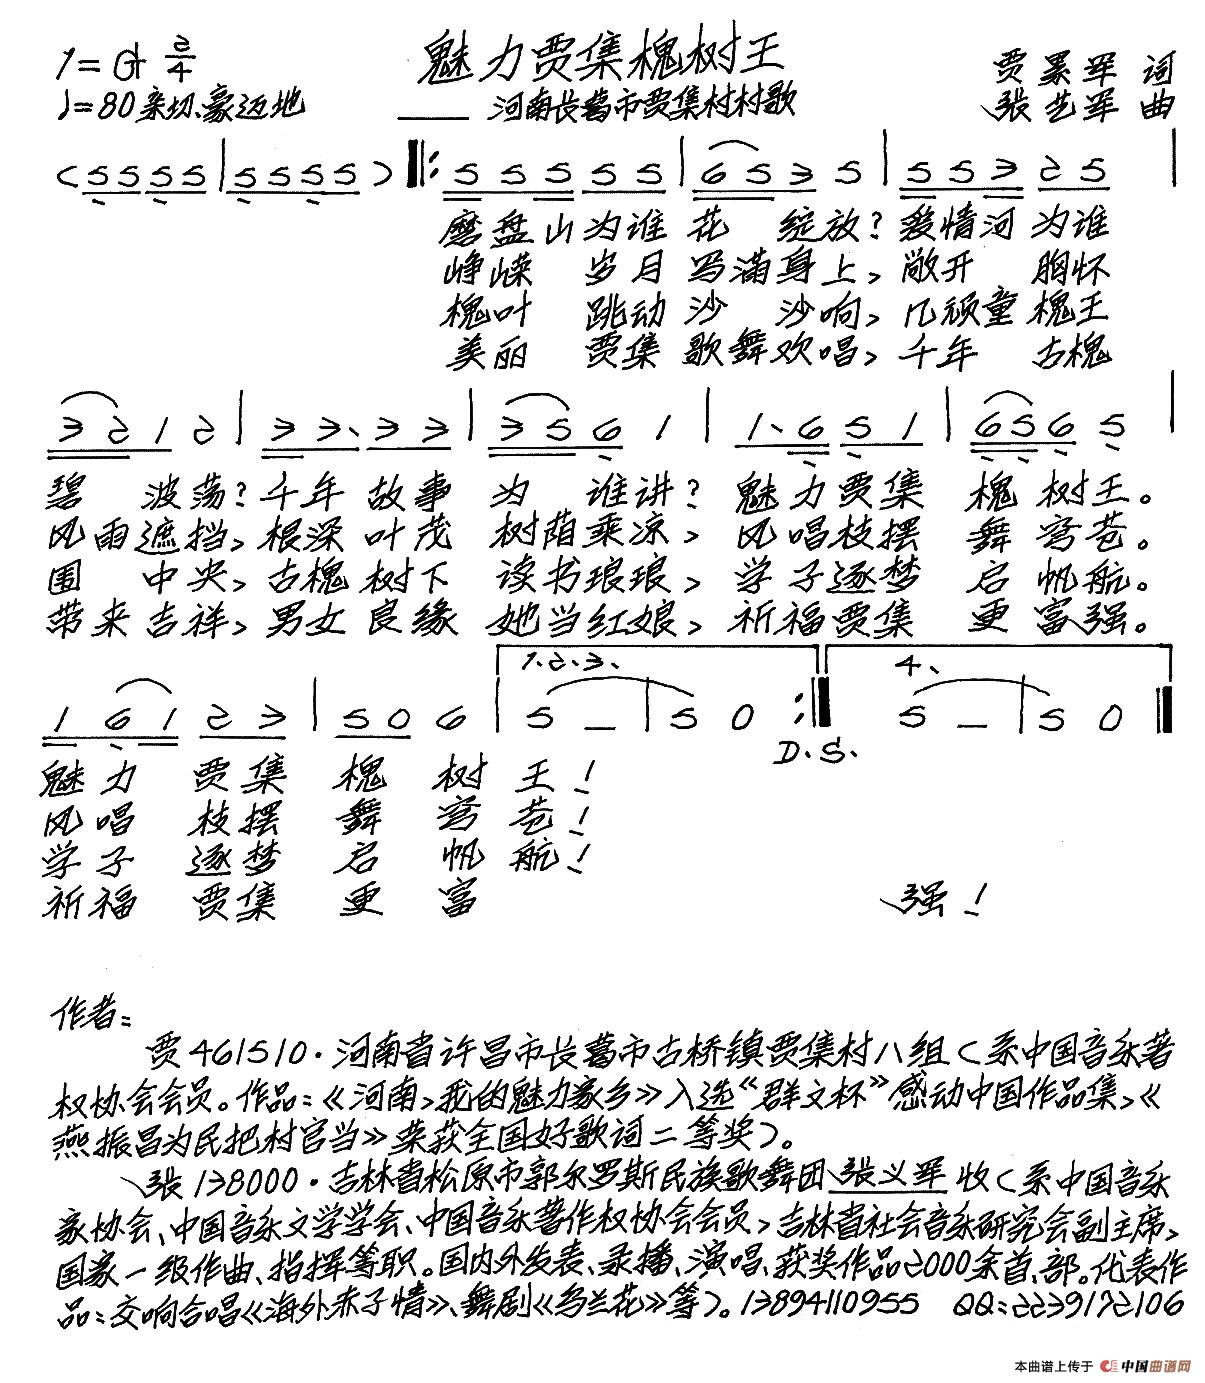 1=G 2/4
魅力贾集槐树王
贾累军 词
♩=80 亲切、豪迈地
——河南长葛市贾集村村歌
张艺军 曲
(5 5 5 5 | 5 5 5 5) ‖: 5 5 5 5 5 | 6 5 3 5 | 5 5 3 2 5 |
磨盘山为谁 花 绽放?爱情河为谁
峥嵘 岁月 写满身上,敞开 胸怀
槐叶 跳动 沙 沙响,几顽童 槐王
美丽 贾集 歌舞欢唱,千年 古槐
3 2 1 2 | 3 3、3 3 | 3 5 6 1 | 1、6 5 1 | 6 5 6 5 |
碧 波荡?千年 故事 为 谁讲?魅力贾集 槐 树王。
风雨遮挡,根深 叶茂 树荫乘凉,风唱枝摆 舞 穹苍。
围 中央,古槐 树下 读书琅琅,学子逐梦 启 帆航。
带来吉祥,男女 良缘 她当红娘,祈福贾集 更 富强。
1.2.3、 4、
1 6 1 2 3 | 5 0 6 | 5 — | 5 0 :‖ 5 — | 5 0 ‖
D.S.
魅力 贾集 槐 树 王!
风唱 枝摆 舞 穹 苍!
学子 逐梦 启 帆 航!
祈福 贾集 更 富 强!
作者:
贾461510·河南省许昌市长葛市古桥镇贾集村八组(系中国音乐著
权协会会员。作品:《河南,我的魅力家乡》入选“群文杯”感动中国作品集,《
燕振昌为民把村官当》荣获全国好歌词二等奖)。
张138000·吉林省松原市郭尔罗斯民族歌舞团张义军收(系中国音乐
家协会、中国音乐文学学会、中国音乐著作权协会会员,吉林省社会音乐研究会副主席,
国家一级作曲、指挥等职。国内外发表、录播、演唱、获奖作品2000余首、部。代表作
品:交响合唱《海外赤子情》、舞剧《乌兰花》等)。13894110955 QQ:2239172106
本曲谱上传于 中国曲谱网